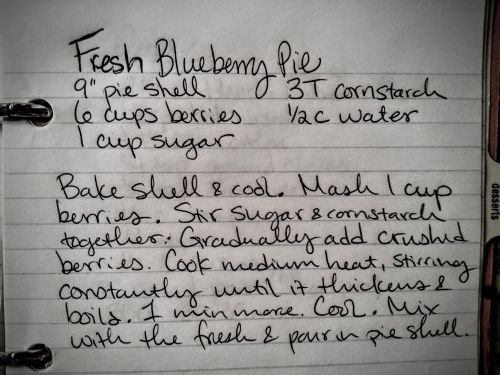 Fresh Blueberry Pie
9" pie shell 3T cornstarch
6 cups berries ½ c water
1 cup sugar
Bake shell & cool. Mash 1 cup
berries. Stir sugar & cornstarch
together. Gradually add crushed
berries. Cook medium heat, stirring
constantly until it thickens &
boils. 1 min more. Cool. Mix
with the fresh & pour in pie shell.
desserts